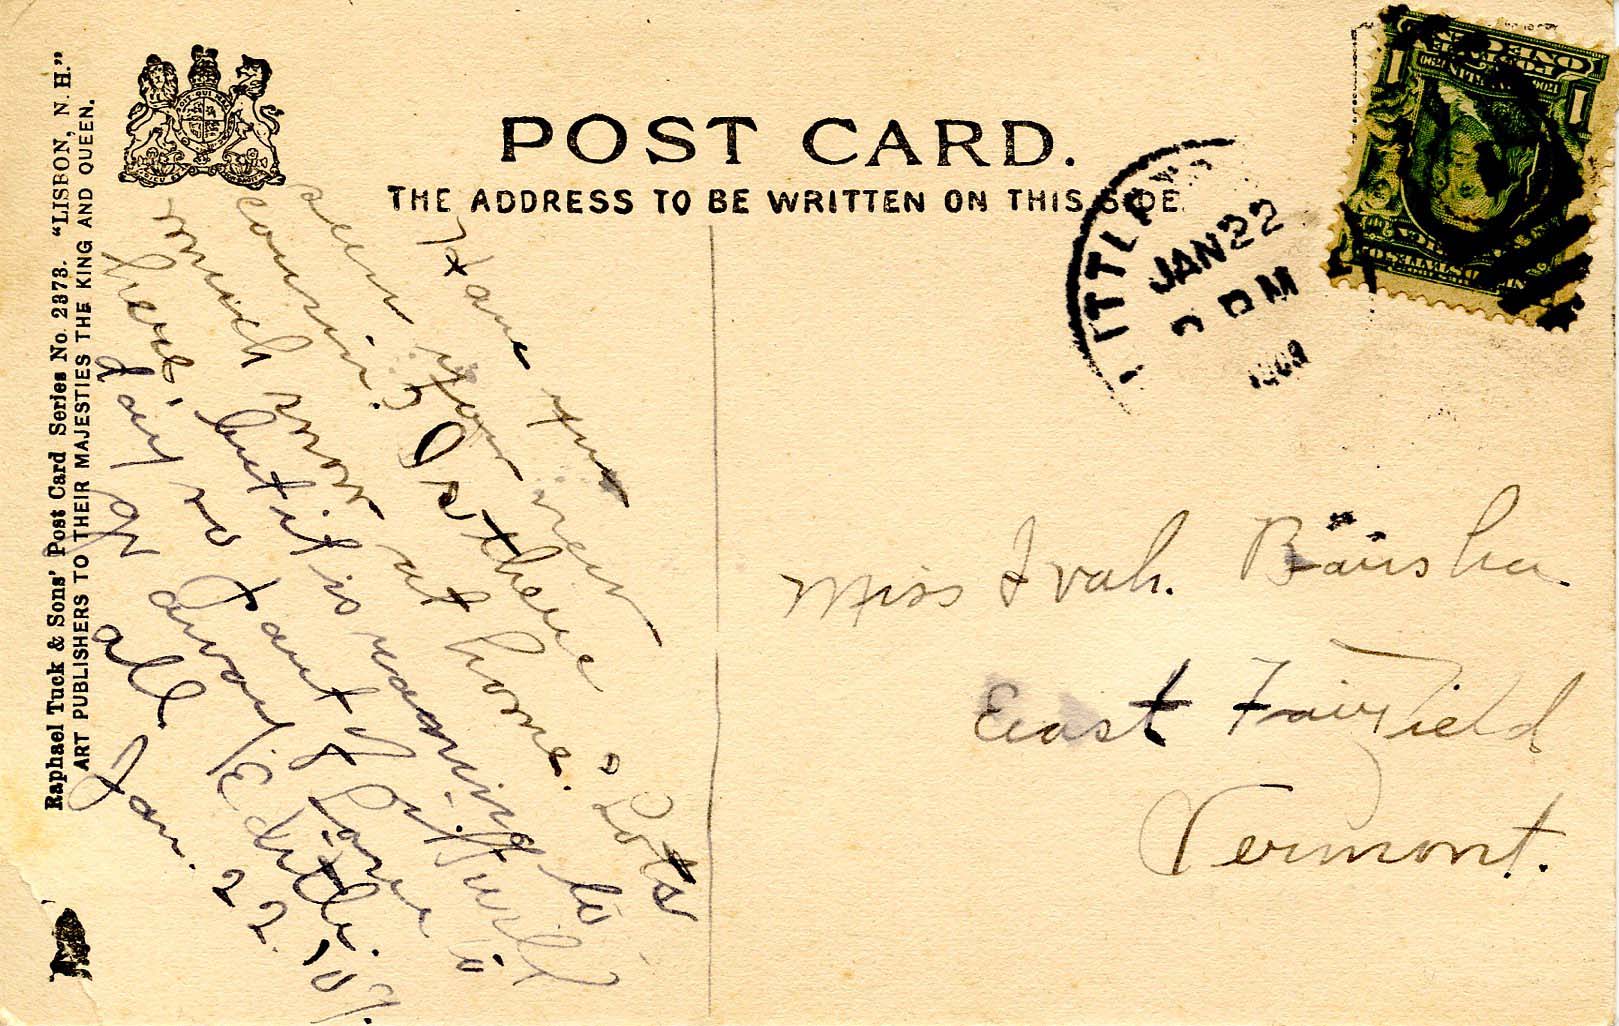 POST CARD.
THE ADDRESS TO BE WRITTEN ON THIS SIDE.
Raphael Tuck & Sons' Post Card Series No. 2373. "LISBON, N. H."
ART PUBLISHERS TO THEIR MAJESTIES THE KING AND QUEEN.
JAN 22
PM
1
1
Have you
seen your new
cousin? Is there
much snow at home. Lots
here but it is raining to
day so part of it will
go away. Love to
all Edith.
Jan. 22. '07.
Miss Ivah. Bausha
East Fairfield
Vermont.